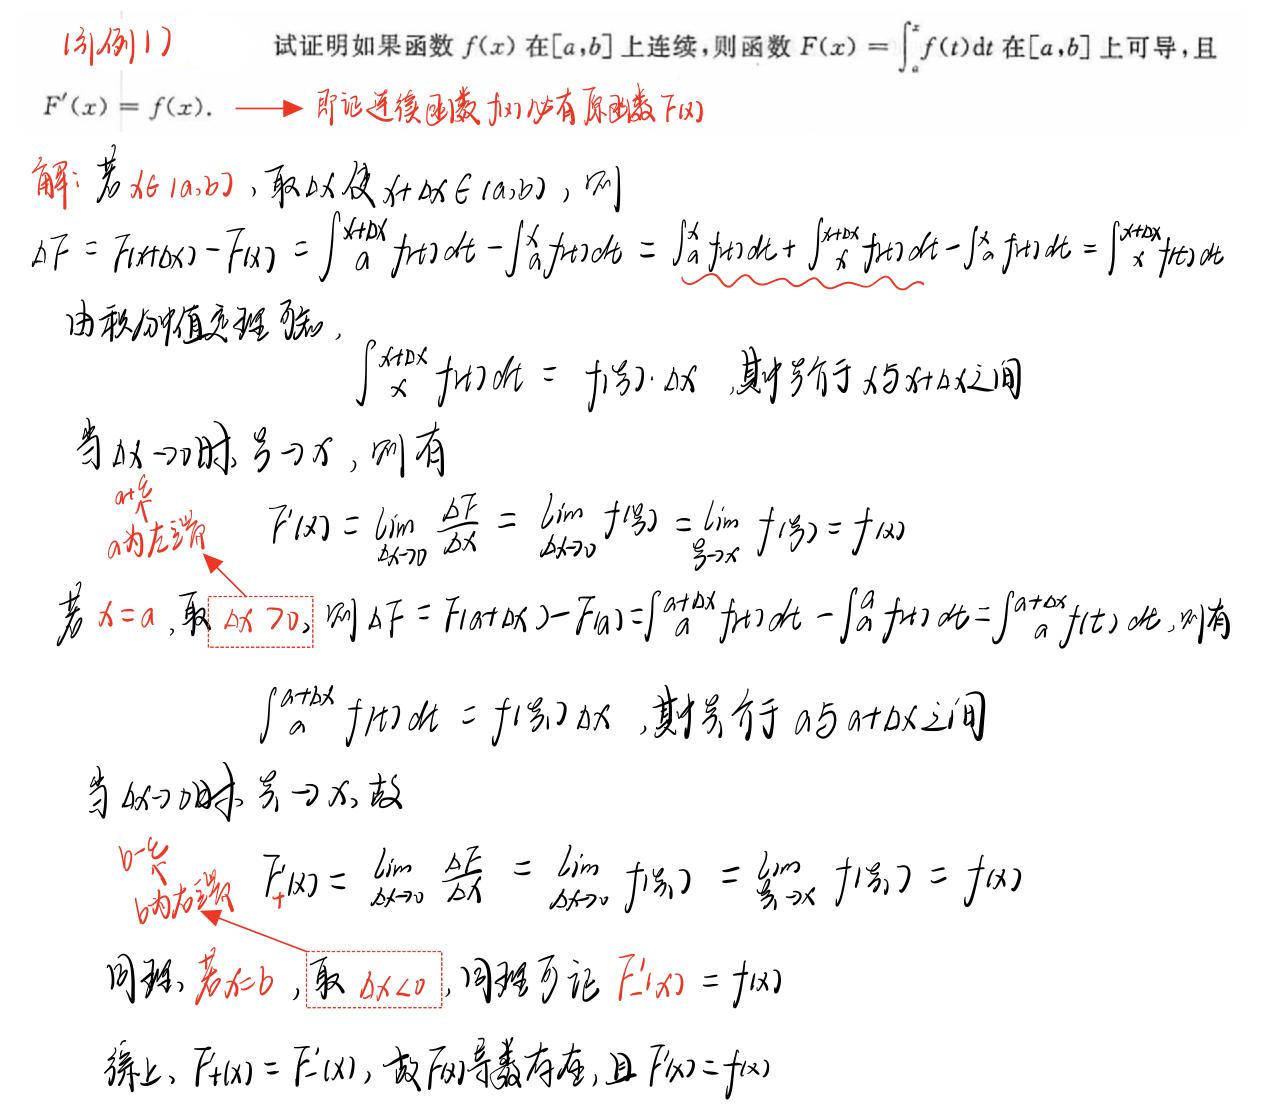 (引例1) 试证明如果函数 f(x) 在[a,b]上连续,则函数 F(x) = ∫ₐˣ f(t)dt 在[a,b]上可导,且
F′(x) = f(x). → 即证连续函数 f(x) 必有原函数 F(x)
解: 若 x∈(a,b), 取Δx使 x+Δx∈(a,b), 则
ΔF = F(x+Δx) - F(x) = ∫_a^{x+Δx} f(t)dt - ∫_a^x f(t)dt = ∫_a^x f(t)dt + ∫_x^{x+Δx} f(t)dt - ∫_a^x f(t)dt = ∫_x^{x+Δx} f(t)dt
由积分中值定理可知,
∫_x^{x+Δx} f(t)dt = f(ξ)·Δx, 其中ξ介于 x与x+Δx之间
当Δx→0时, ξ→x, 则有
a为左端
F′(x) = lim_{Δx→0} ΔF/Δx = lim_{Δx→0} f(ξ) = lim_{ξ→x} f(ξ) = f(x)
若 x=a, 取 Δx>0, 则ΔF = F(a+Δx) - F(a) = ∫_a^{a+Δx} f(t)dt - ∫_a^a f(t)dt = ∫_a^{a+Δx} f(t)dt, 则有
∫_a^{a+Δx} f(t)dt = f(ξ₁)Δx, 其中ξ₁介于 a与a+Δx之间
当Δx→0时, ξ₁→x, 故
b为右端
F′₊(x) = lim_{Δx→0} ΔF/Δx = lim_{Δx→0} f(ξ₁) = lim_{ξ₁→x} f(ξ₁) = f(x)
同理, 若x=b, 取 Δx<0, 同理可证 F′₋(x) = f(x)
综上, F′₊(x) = F′₋(x), 故F(x)导数存在, 且 F′(x) = f(x)